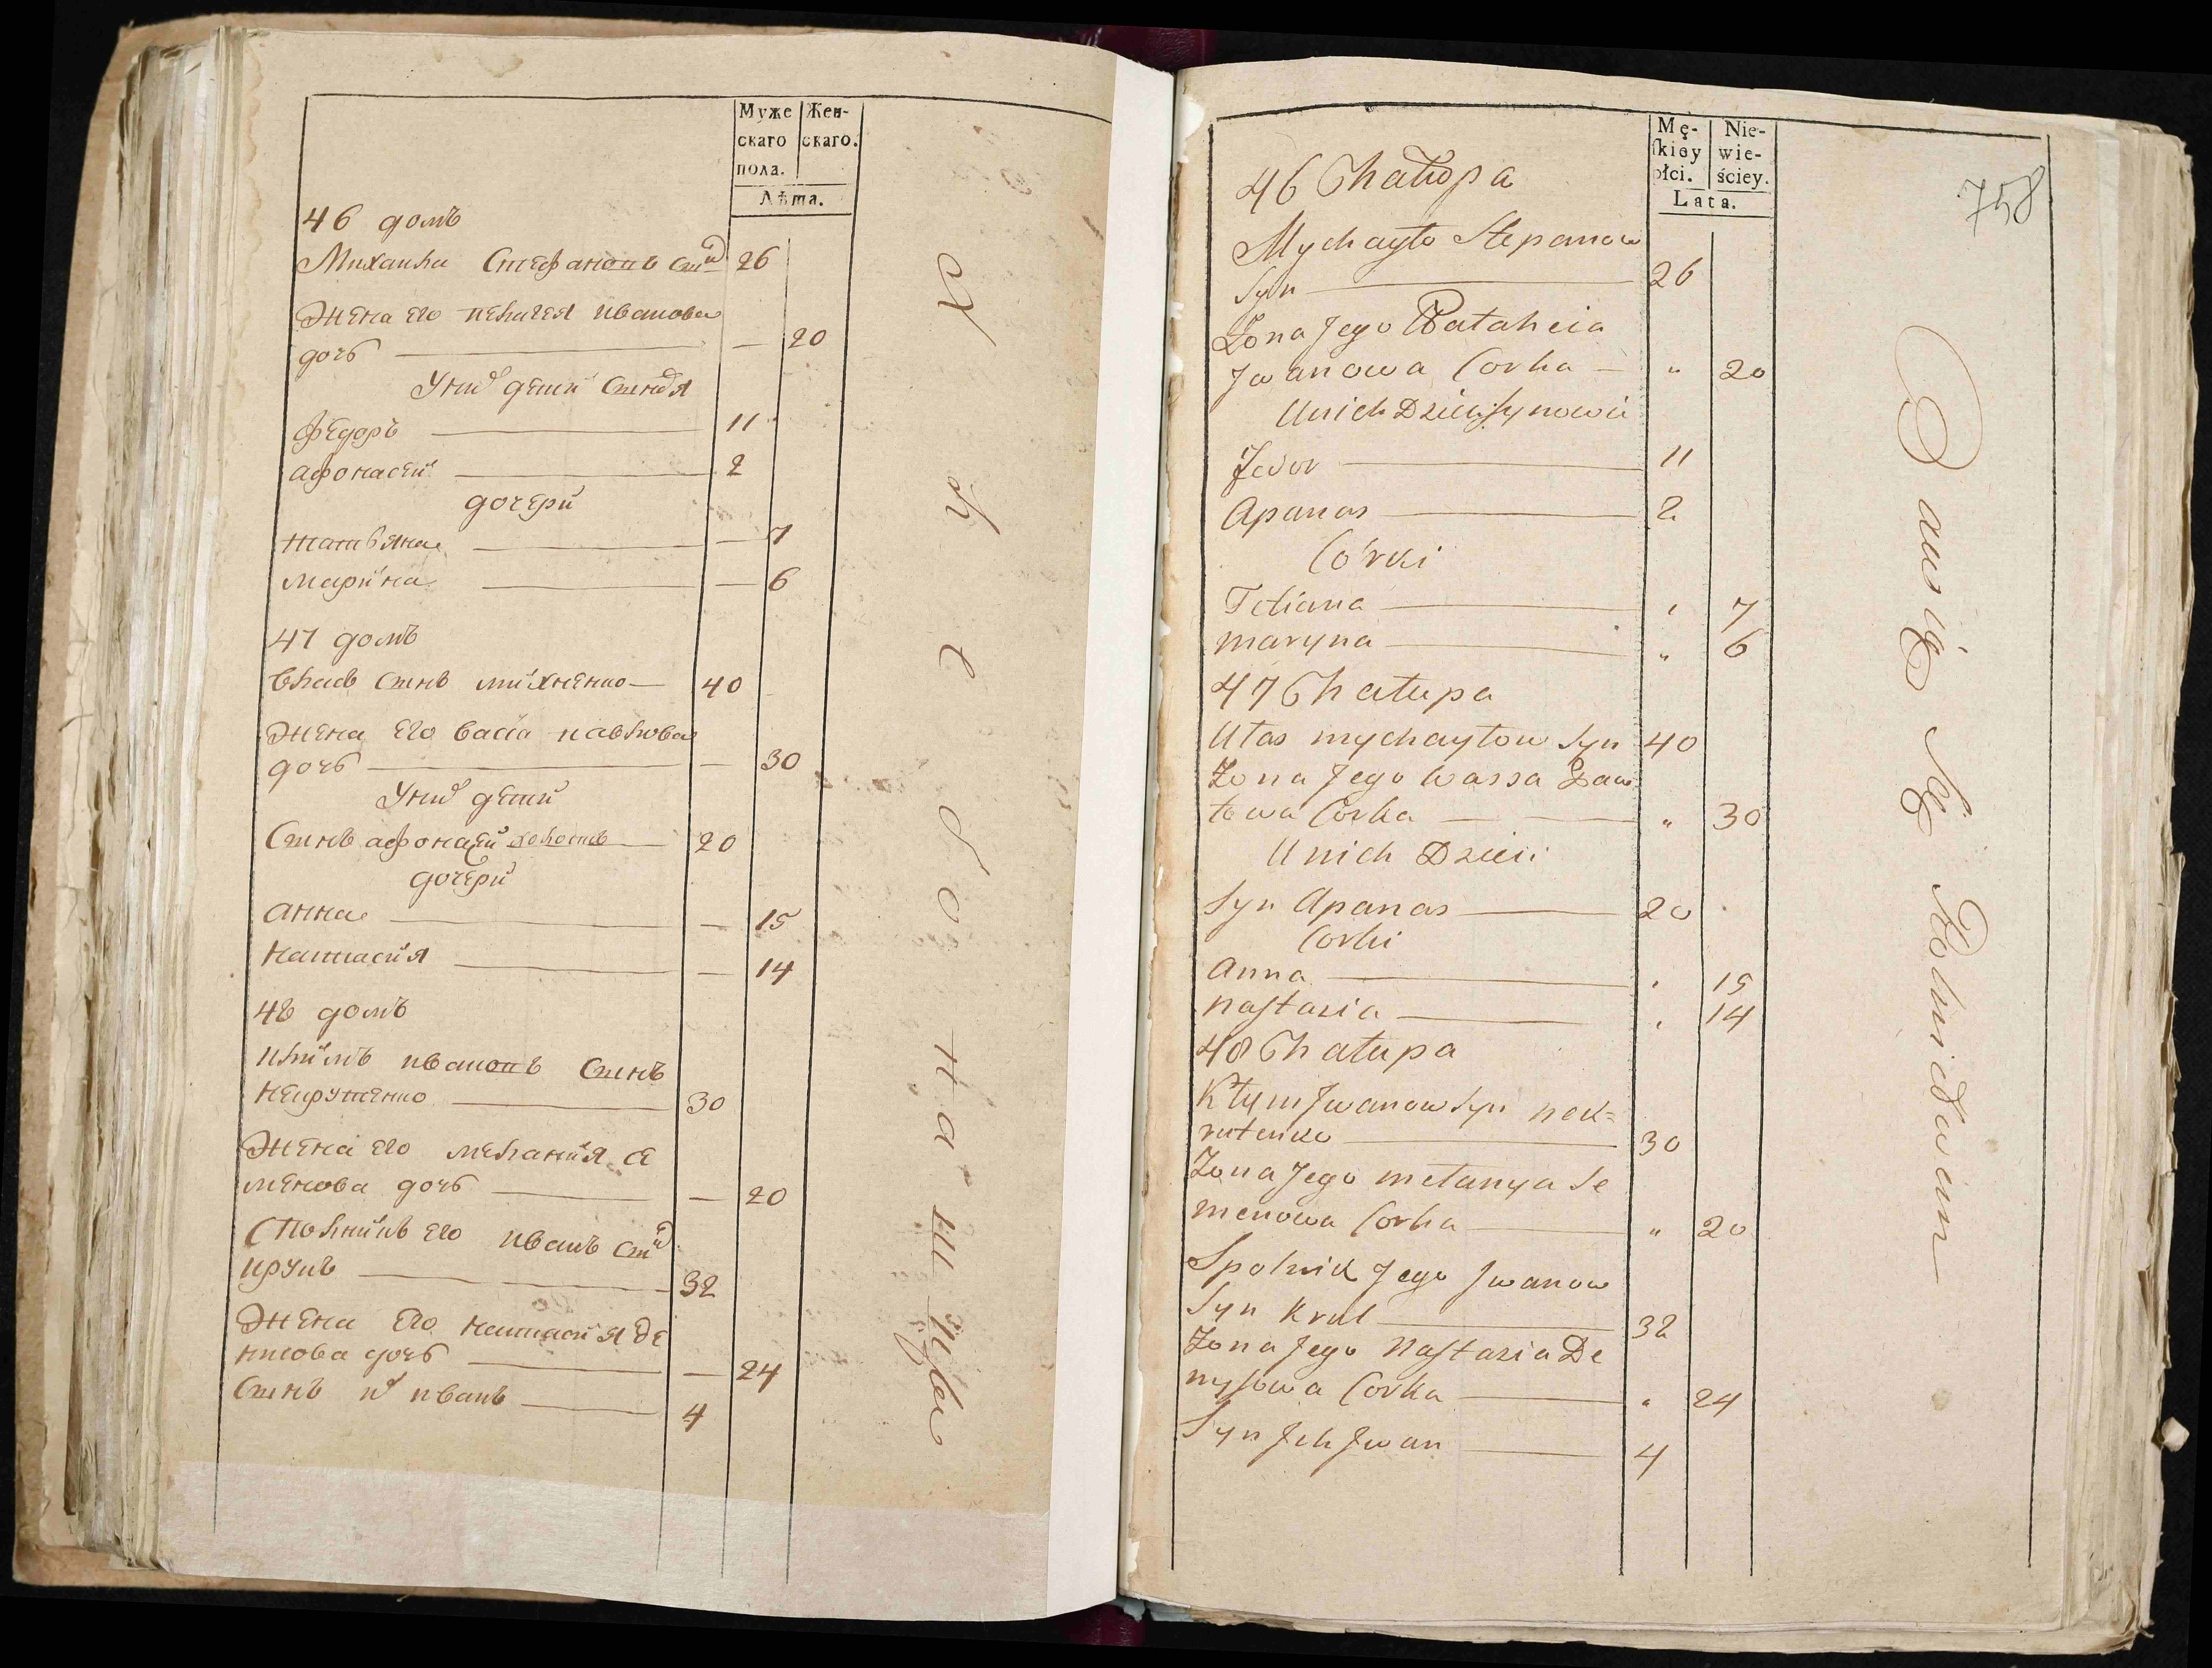 Муже
скаго
пола.
Жен-
скаго.
Лѣта.
46 домъ
Михаила Стефановъ сынъ 26
Жена его пелагея иванова
дочь — 20
У них дети сыновья
Федоръ 11
афонасей 2
дочери
татьяна — 7
марина — 6
47 домъ
влась сынъ михненко 40
Жена его васса павлова
дочь — 30
У них дети
Сынъ афонасей холостъ 20
дочери
анна — 15
настасия — 14
48 домъ
климъ ивановъ сынъ
некрутенко 30
Жена его мелания се
менова дочь — 20
Сполникъ его иванъ сынъ
круль 32
Жена его настасия де
нисова дочь — 24
Сынъ их иванъ 4
Mę-
skiey
płci.
Nie-
wie-
ściey.
Lata.
758
46 Chałupa
Mychayło Stepanow
Syn 26
Żona Jego Pałaheia
Jwanowa Corka „ 20
U nich Dzieci Synowie
Fedor 11
Apanas 2
Córki
Tetiana „ 7
maryna „ 6
47 Chałupa
Ułas mychayłow Syn 40
Żona Jego Wassa Paw
łowa Córka „ 30
U nich Dzieci
Syn Apanas 20
Corki
Anna „ 15
nastazia „ 14
48 Chałupa
Kłym Jwanow Syn nek=
rutenko 30
Żona Jego mełanya Se
menowa Corka „ 20
Spolnik Jego Jwanow
Syn Krul 32
Żona Jego Nastazia De
nysowa Corka „ 24
Syn Jch Jwan 4